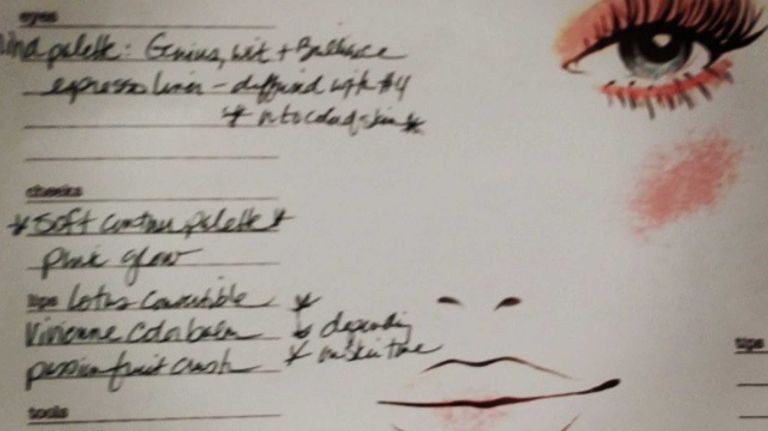 eyes
palette: Genius, wit + Brilliance
espresso liner - diffused with #4
cheeks
* Soft contour palette *
pink glow
lips Lotus Convertible *
Vivienne Color balm ↓ depending
passionfruit crush * on skin tone
tips
tools